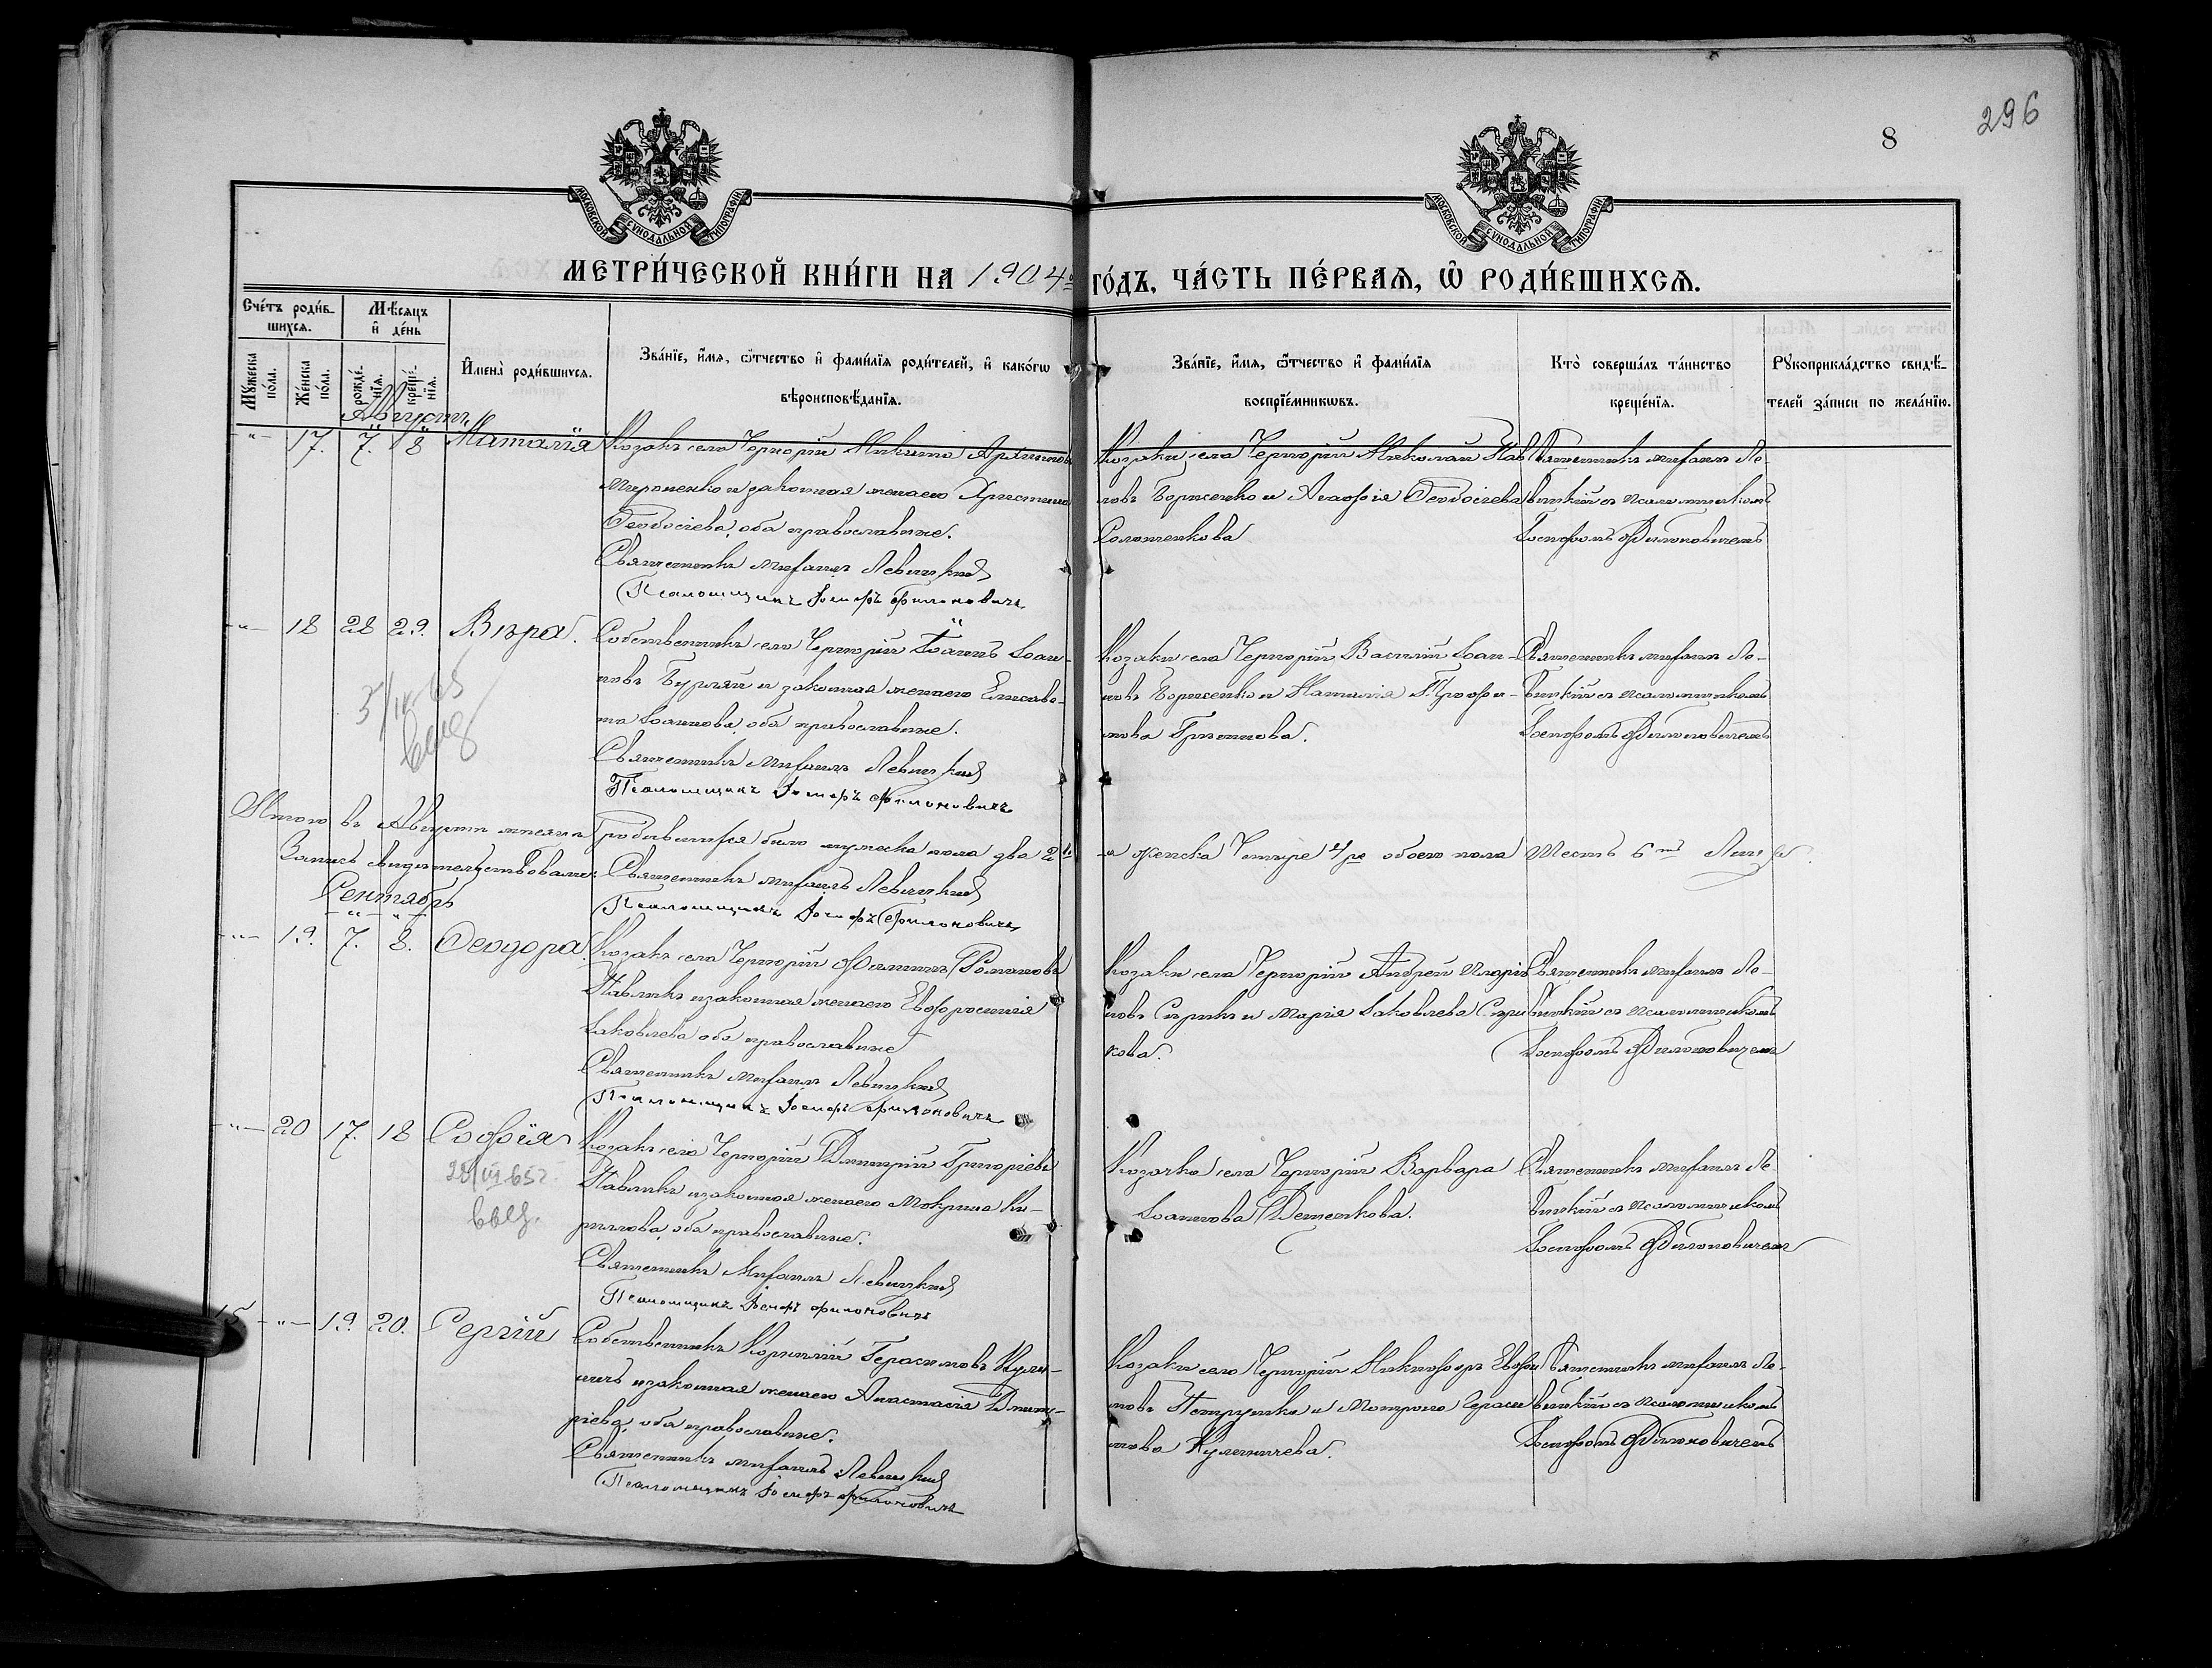 296
8
МОСКОВСКОЙ СѴНОДАЛЬНОЙ ТИПОГРАФІИ
МОСКОВСКОЙ СѴНОДАЛЬНОЙ ТИПОГРАФІИ
МЕТРИ́ЧЕСКОЙ КНИ́ГИ НА 1904й ГО́ДЪ, ЧА́СТЬ ПЕ́РВАѦ, Ѡ҆ РОДИ́ВШИХСѦ.
Сче́тъ роди́вшихсѧ. Мѣ́сѧцъ и҆ де́нь
Мꙋ́жеска по́ла. Же́нска по́ла. рожде́нїѧ. креще́нїѧ.
И҆мена̀ роди́вшихсѧ.
Зва́нїе, и҆́мѧ, ѻ҆́тчество и҆ фами́лїѧ роди́телей, и҆ како́гѡ вѣроисповѣ́данїѧ.
Зва́нїе, и҆́мѧ, ѻ҆́тчество и҆ фами́лїѧ воспрїе́мникѡвъ.
Кто̀ соверша́лъ та́инство креще́нїѧ.
Рꙋкоприкла́дство свидѣ́телей за́писи по жела́нїю.
Августъ
-"- 17. 7. 8 Наталія
Козакъ села Чернорій Никита Архиповъ
Мироненко и законная жена его Христина
Ѳеодосіева, оба православные.
Священникъ Михаилъ Левицкій
Псаломщикъ Іосифъ Филоновичъ
Козаки села Чернорій Николай Пав
ловъ Борженко и Агафія Ѳеодосіева
Священникъ Михаилъ Ле-
вицкій съ псаломщикомъ
Іосифомъ Филоновичемъ
-"- 18 28 29. Вѣра.
Собственникъ села Чернорій Іоаннъ Іоан-
новъ Бурлай и законная жена его Елисаве-
та Іоаннова, оба православные.
Священникъ Михаилъ Левицкій
Псаломщикъ Іосифъ Филоновичъ
Козаки села Чернорій Василій Іоан-
новъ Борженко и Наталія Трофи-
мова
Священникъ Михаилъ Ле-
вицкій съ псаломщикомъ
Іосифомъ Филоновичемъ
Итого въ Августѣ мѣсяцѣ родившихся было мужеска пола два 2
и женска четыре 4ре обоего пола шесть 6ть лицъ
Запись свидѣтельствовали: Священникъ Михаилъ Левицкій
Псаломщикъ Іосифъ Филоновичъ
Сентябрь
-"- 19. 7. 8. Ѳеодора.
Козакъ села Чернорій Филиппъ Романовъ
Павликъ и законная жена его Евфросинія
Іаковлева оба православные
Священникъ Михаилъ Левицкій
Псаломщикъ Іосифъ Филоновичъ
Козаки села Чернорій Андрей Иларіо
новъ Сирикъ и Марія Іаковлева Сири
кова.
Священникъ Михаилъ Ле-
вицкій съ псаломщикомъ
Іосифомъ Филоновичемъ
-"- 20 17. 18 Софія
Козакъ села Чернорій Димитрій Григоріевъ
Павликъ и законная жена его Мокрина Ки-
риллова, оба православные.
Священникъ Михаилъ Левицкій
Псаломщикъ Іосифъ Филоновичъ
Козачка села Чернорій Варвара
Іоаннова
Священникъ Михаилъ Ле
вицкій съ псаломщикомъ
Іосифомъ Филоновичемъ
15 -"- 19. 20. Сергій
Собственникъ Корнилій Герасимовъ Кули-
ничъ и законная жена его Анастасія Димит-
ріева, оба православные.
Священникъ Михаилъ Левицкій
Псаломщикъ Іосифъ Филоновичъ
Козаки села Чернорій Никифоръ Евфи
мовъ Петрушка и Матрона Гераси
мова Кулиничева.
Священникъ Михаилъ Ле-
вицкій съ псаломщикомъ
Іосифомъ Филоновичемъ